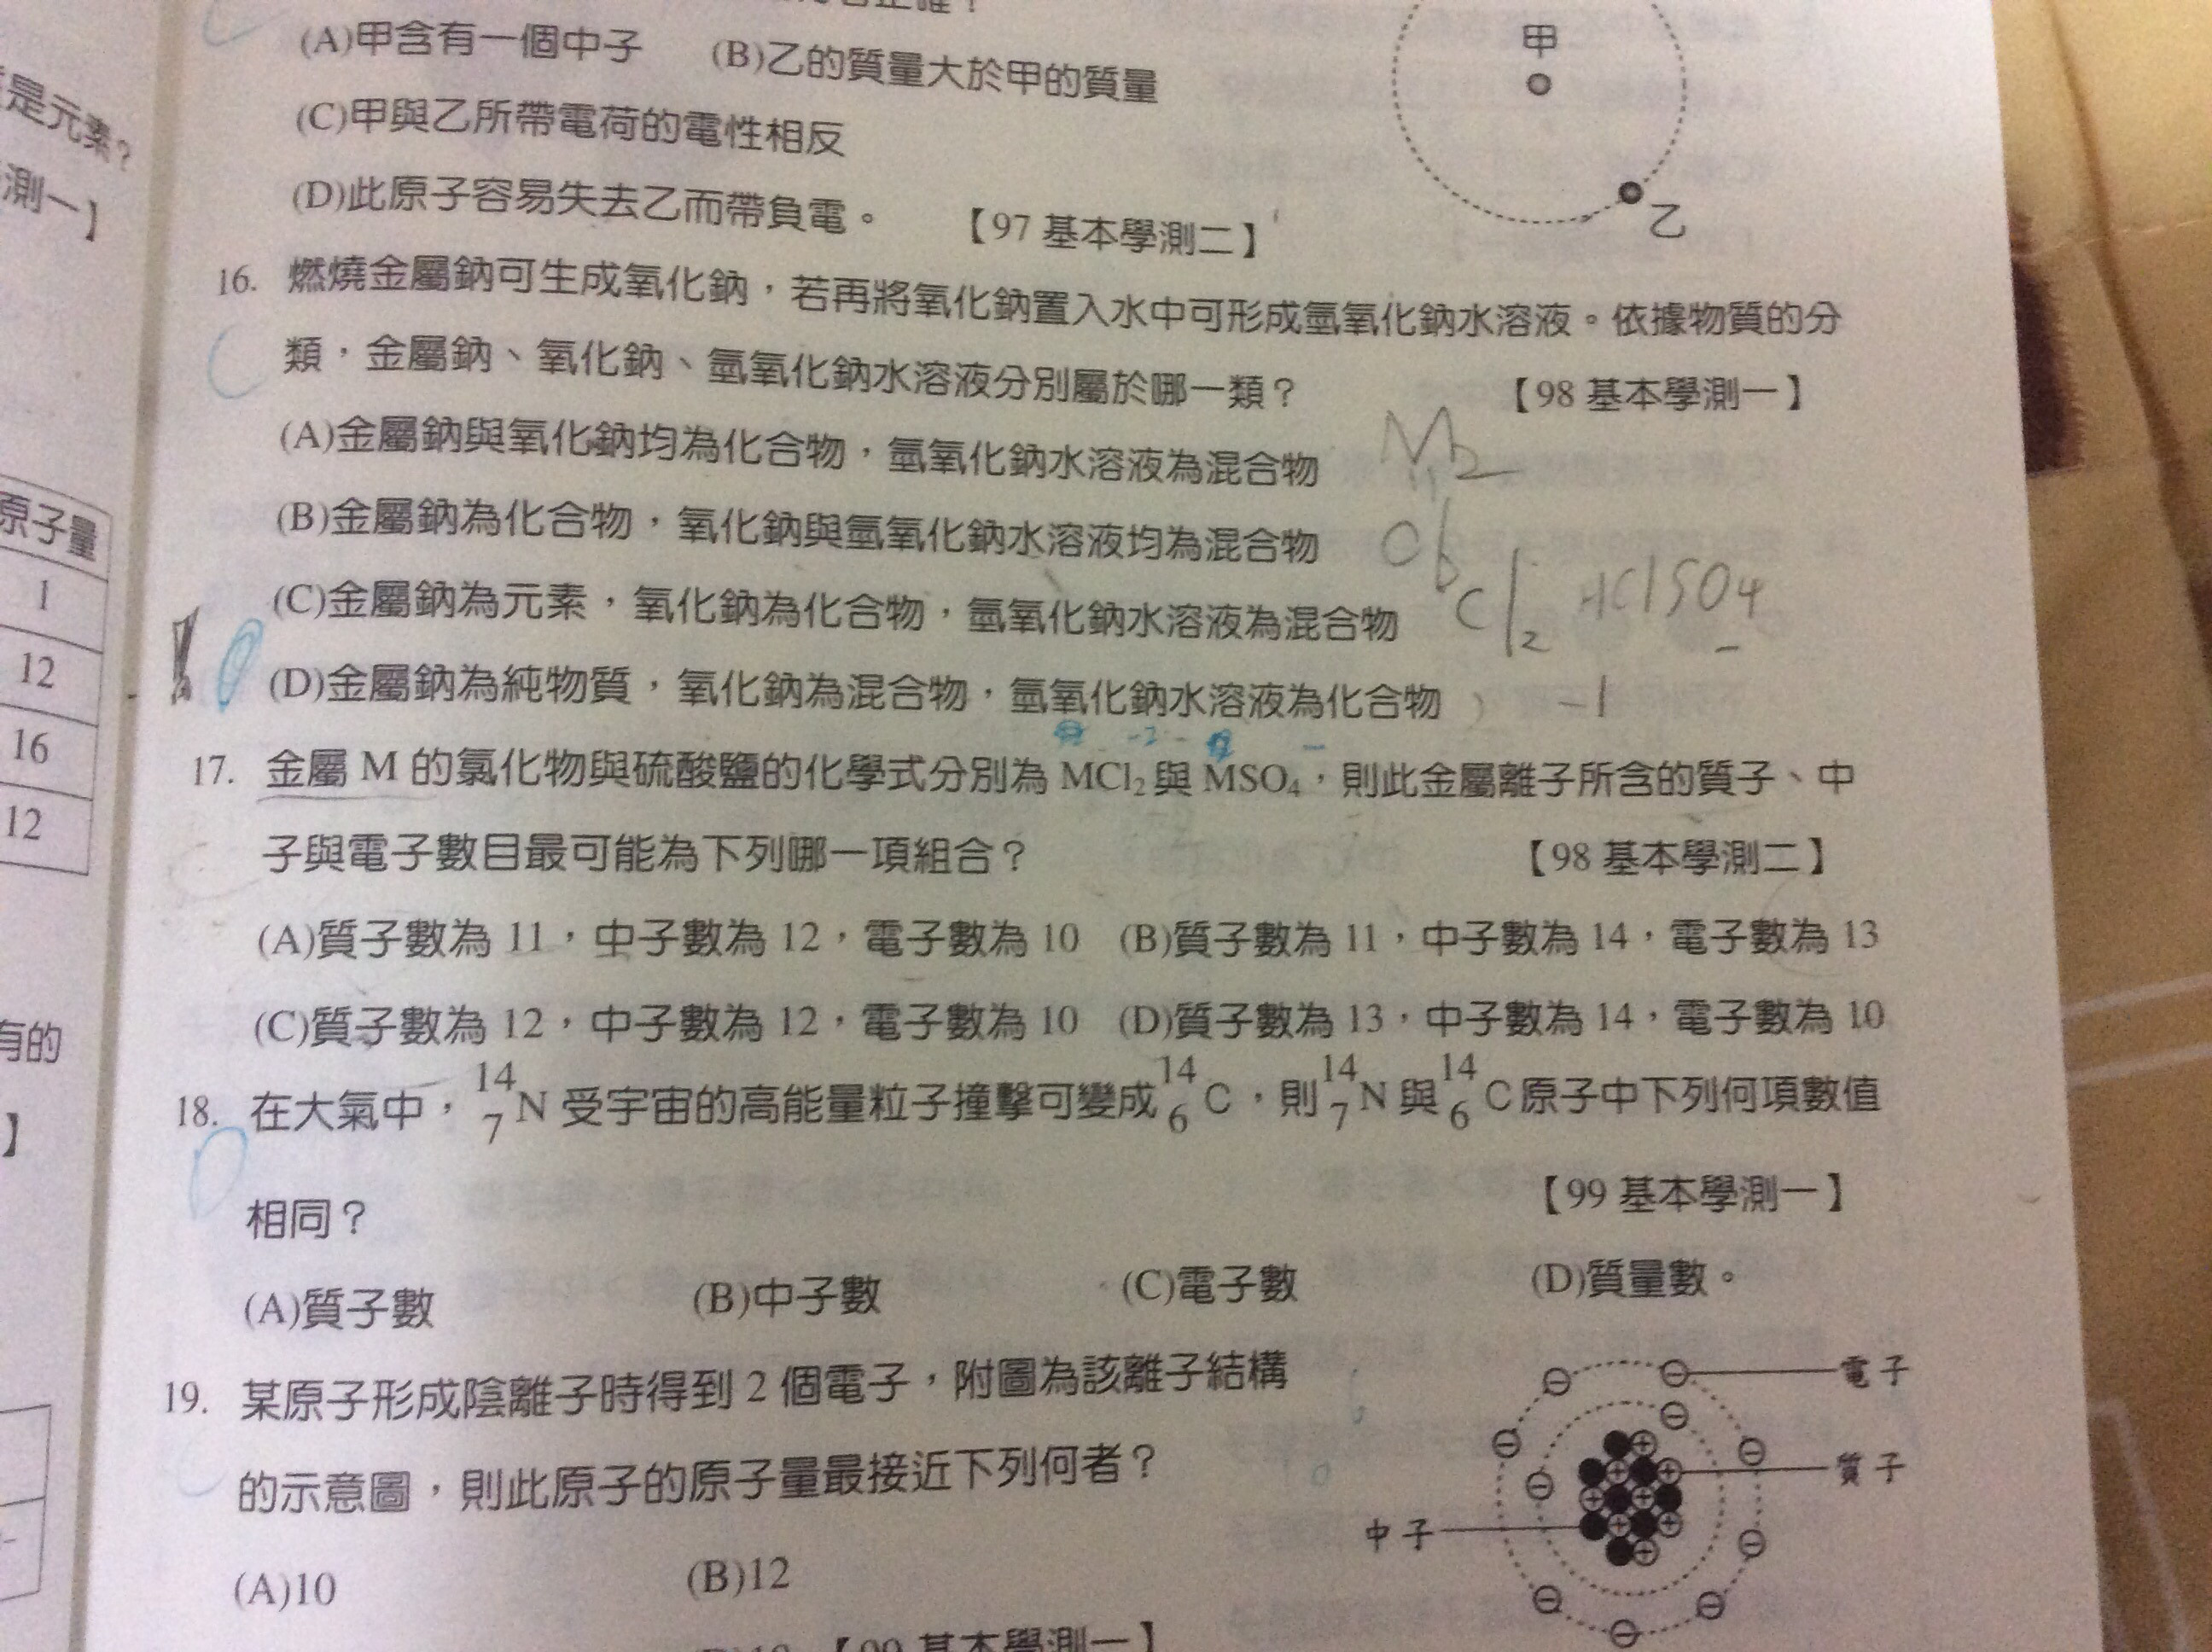 是元素?
測一】
原子量
1
12
16
12
有的
】
(A)甲含有一個中子 (B)乙的質量大於甲的質量
(C)甲與乙所帶電荷的電性相反
(D)此原子容易失去乙而帶負電。 【97 基本學測二】
甲
乙
16. 燃燒金屬鈉可生成氧化鈉,若再將氧化鈉置入水中可形成氫氧化鈉水溶液。依據物質的分
類,金屬鈉、氧化鈉、氫氧化鈉水溶液分別屬於哪一類? 【98 基本學測一】
(A)金屬鈉與氧化鈉均為化合物,氫氧化鈉水溶液為混合物
(B)金屬鈉為化合物,氧化鈉與氫氧化鈉水溶液均為混合物
(C)金屬鈉為元素,氧化鈉為化合物,氫氧化鈉水溶液為混合物
Cl₂ HClSO₄
(D)金屬鈉為純物質,氧化鈉為混合物,氫氧化鈉水溶液為化合物
-1
17. 金屬 M 的氯化物與硫酸鹽的化學式分別為 MCl₂ 與 MSO₄,則此金屬離子所含的質子、中
子與電子數目最可能為下列哪一項組合? 【98 基本學測二】
(A)質子數為 11,中子數為 12,電子數為 10 (B)質子數為 11,中子數為 14,電子數為 13
(C)質子數為 12,中子數為 12,電子數為 10 (D)質子數為 13,中子數為 14,電子數為 10
18. 在大氣中,¹⁴₇N 受宇宙的高能量粒子撞擊可變成 ¹⁴₆C,則 ¹⁴₇N 與 ¹⁴₆C 原子中下列何項數值
相同? 【99 基本學測一】
(A)質子數 (B)中子數 (C)電子數 (D)質量數。
19. 某原子形成陰離子時得到 2 個電子,附圖為該離子結構
的示意圖,則此原子的原子量最接近下列何者?
(A)10 (B)12
【99 基本學測一】
電子
質子
中子